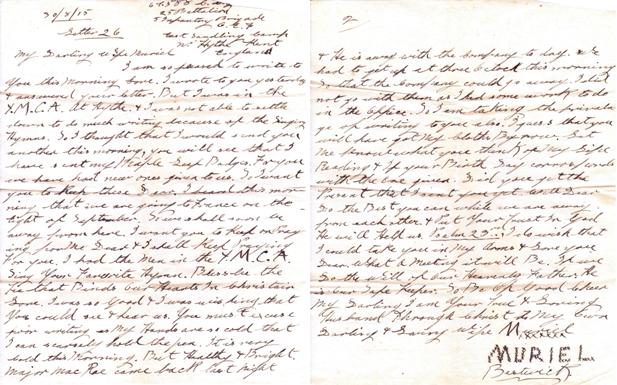 30/8/15
Letter 26
25 Battalion
5 Infantry Brigade
C.E.F
East Sandling Camp
Nr Hythe Kent
England
My Darling Wife Muriel
I am so pleased to write to
you this Morning Love. I wrote to you yesterday
& answered your letter. But I was in the
Y.M.C.A. At Hythe, & I was not able to settle
down to do much writing because of the Singing
Hymns. So I thought that I would send you
another this morning, you will see that I
have sent my Maple Leaf Badges. For you
we have had new ones given to us. So I want
you to Keep these Dear. I heard this mor-
ning that we are going to France on the
of September. So we shall soon be
away from here. I want you to Keep on Pray
ing for Me Dear & I shall Keep Praying
For you. I had the Men in the Y.M.C.A
Sing Your Favourite Hymn. Bless be the
tie that Binds our Hearts In Christain
Love. I was so Good & I was wishing that
You could see & hear us. You must excuse
poor writing as My Hands are so cold that
I can scarcely hold the pen. It is very
cold this Morning. But Healthy & Bright
Major MacRae came back last night
2
& He is away with the company to day. & We
had to get up at three o clock this morning
so that the Company could go away. I did
not go with them as I had some work to do
in the Office. So I am taking the privile
ge of writing to you Love. I guess that you
will have got My cloths By now. Let
Me Know what you think of My Life
Reading & if your Birth Day corresponds
with the one given. Did you get the
Present that I sent you yet. Well Dear
Do the Best you can while we are away
From each other & Put Your Trust In God
He will Help us Psalm 23. I do wish that
I could take you in My Arms & Love you
Dear. What a Meeting it will Be. If we
Do the Will of Our Heavenly Father, He
is Our Safe Keeper. So Be Of Good Cheer
My Darling I am Your True & Loving
Husband through Christ to My Own
Darling & Loving Wife Muriel
MURIEL
Bestwick